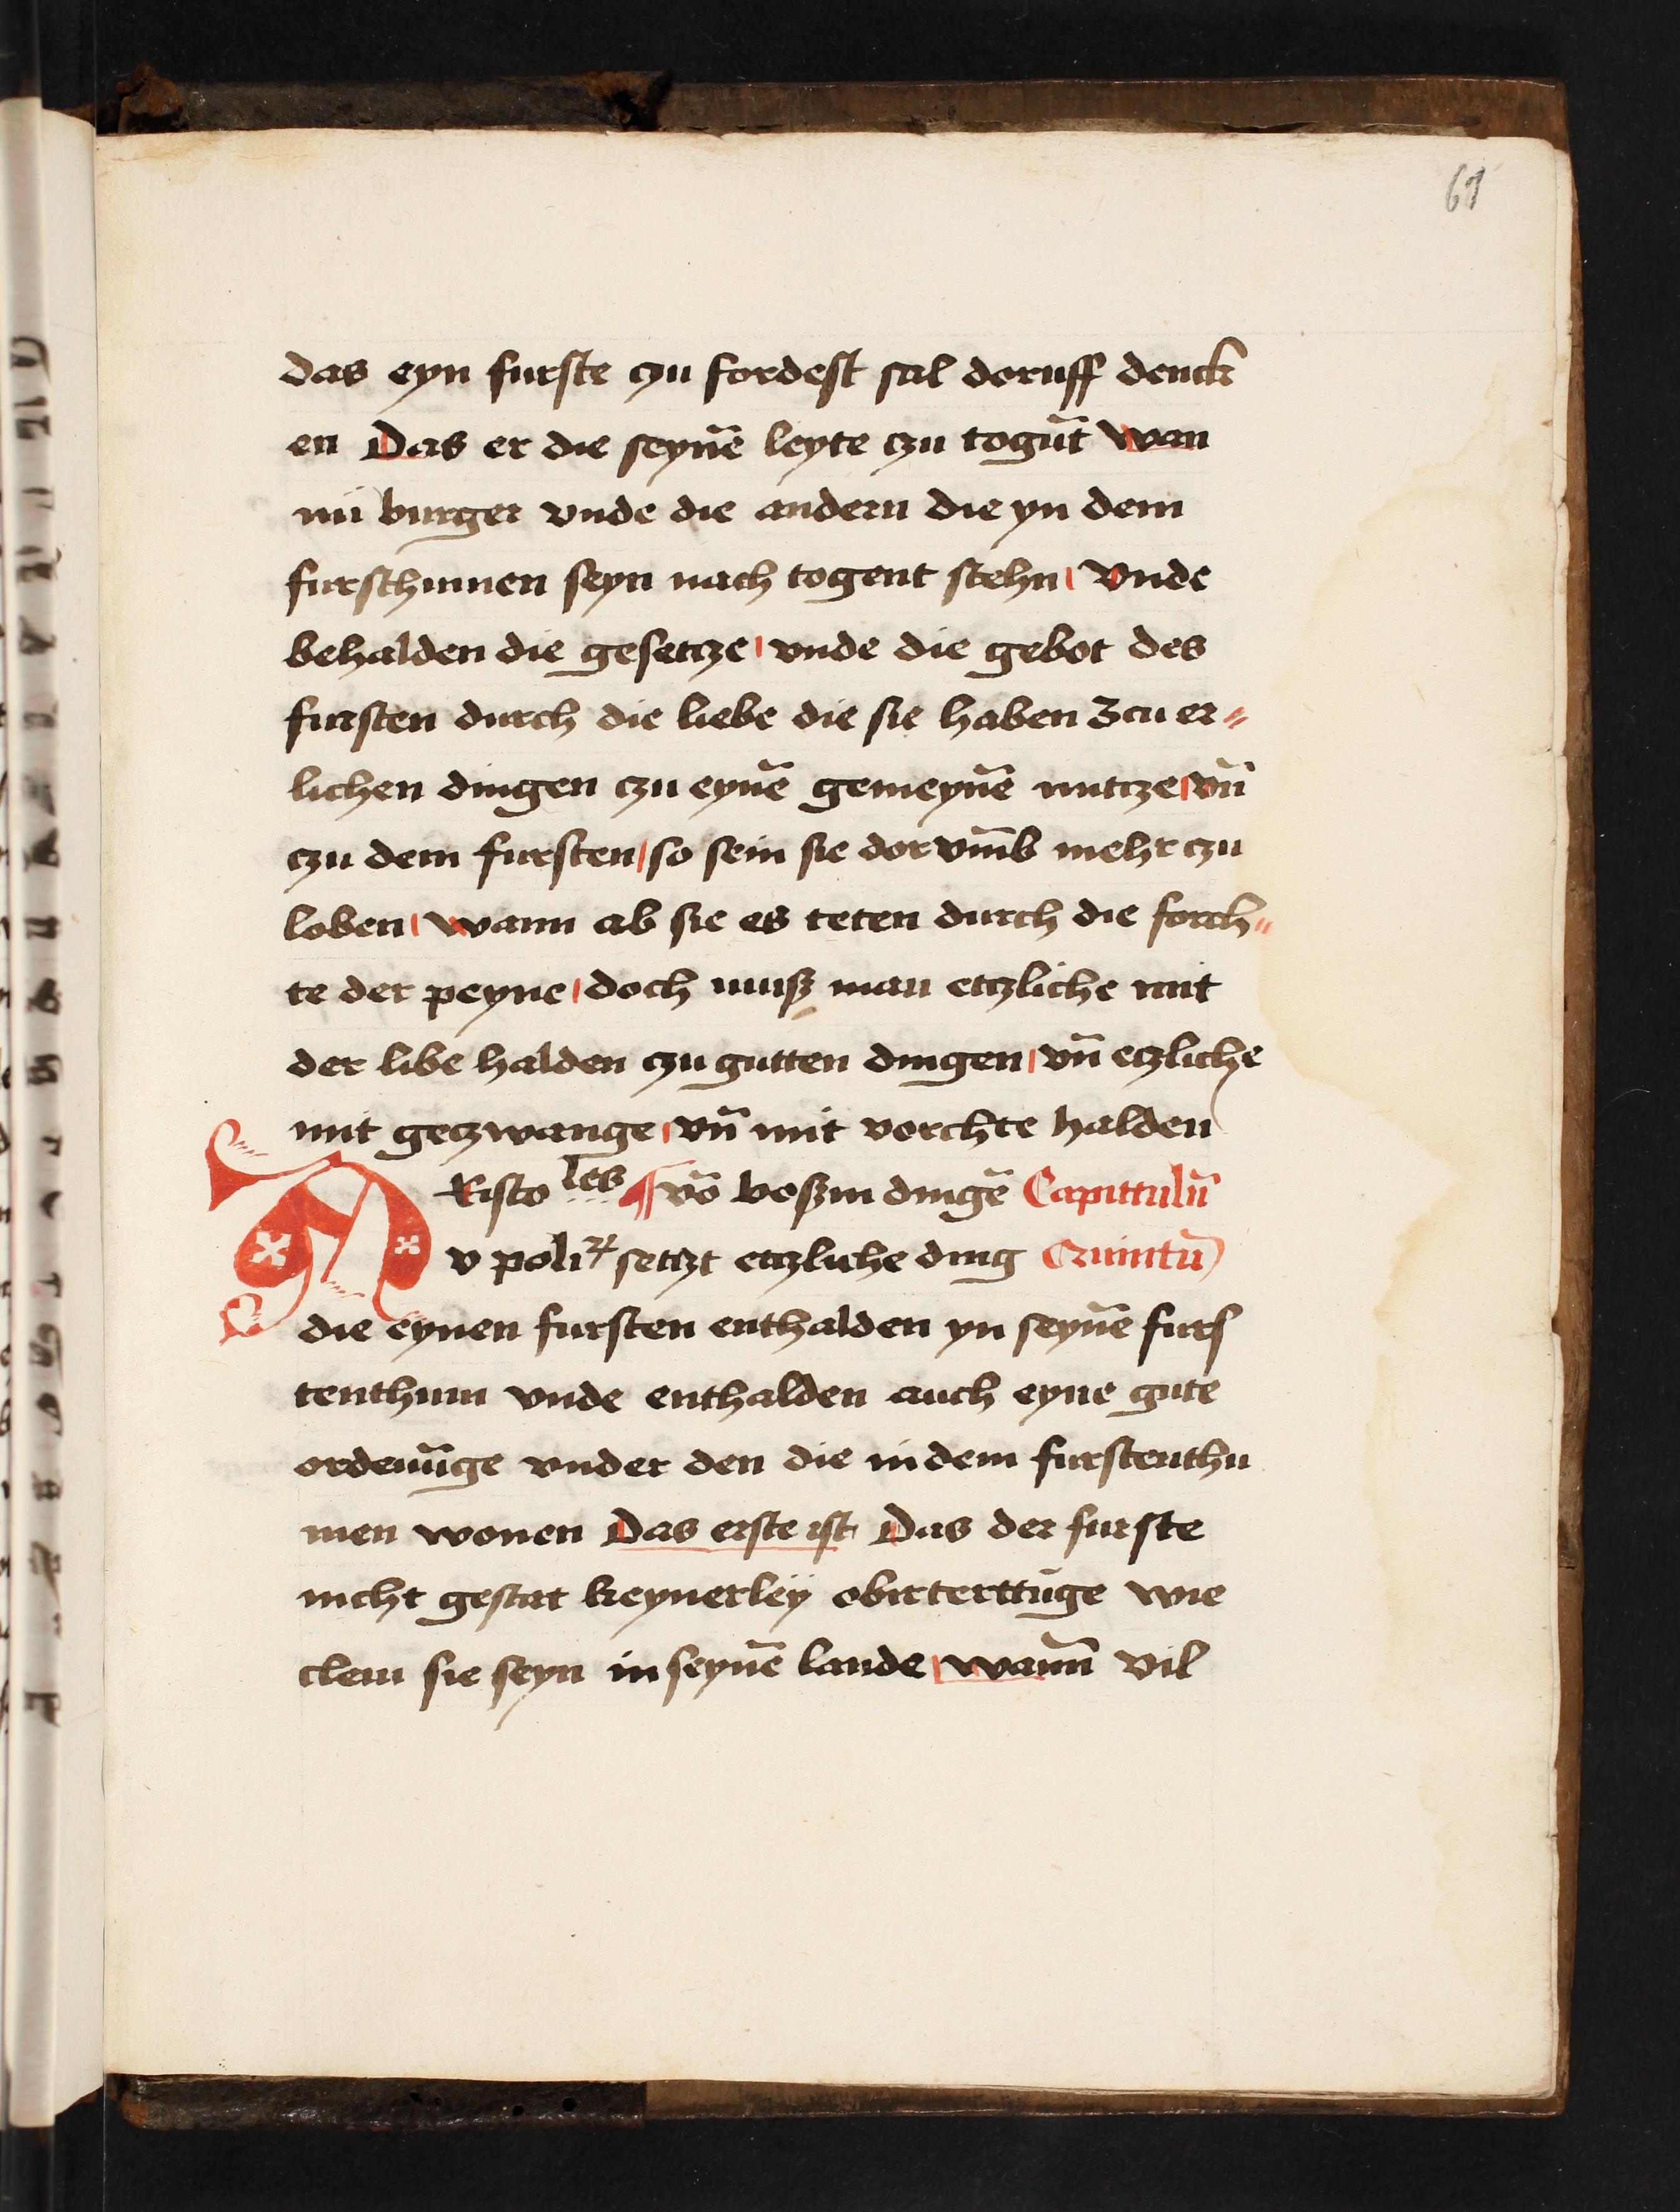 61
das eyn furste czu fordest sal doruff denck
en Das er die seynē leyte czu togūt wan
nū burger vnde die andern die yn dem
fursthumen seyn nach togent stehn vnde
behalden die gesetcze vnde die gebot des
fursten durch die liebe die sie haben zcu er〃
lichen dingen czu eynē gemeynē nutcze vn̄
czu dem fursten so sein sie dor vm̄b mehr czu
loben wann ab sie es teten durch die forch〃
te der peyne doch musz man etczliche mit
der libe halden czu gutten dingen vn̄ etzliche
mit geczwange vn̄ mit vorchte halden
A Risto les ¶ vō boszin dingē Capittulū
v poliꝝ setczt etczliche ding Quintū
die eynen fursten enthalden yn seynē furs
tenthum vnde enthalden auch eyne gute
ordenūge vnder den die in dem furstenthu
men wonen Das erste ist Das der furste
nicht gestat keynerleÿ obirterttūge wie
clein sie seyn in seynē lande wann̄ vil